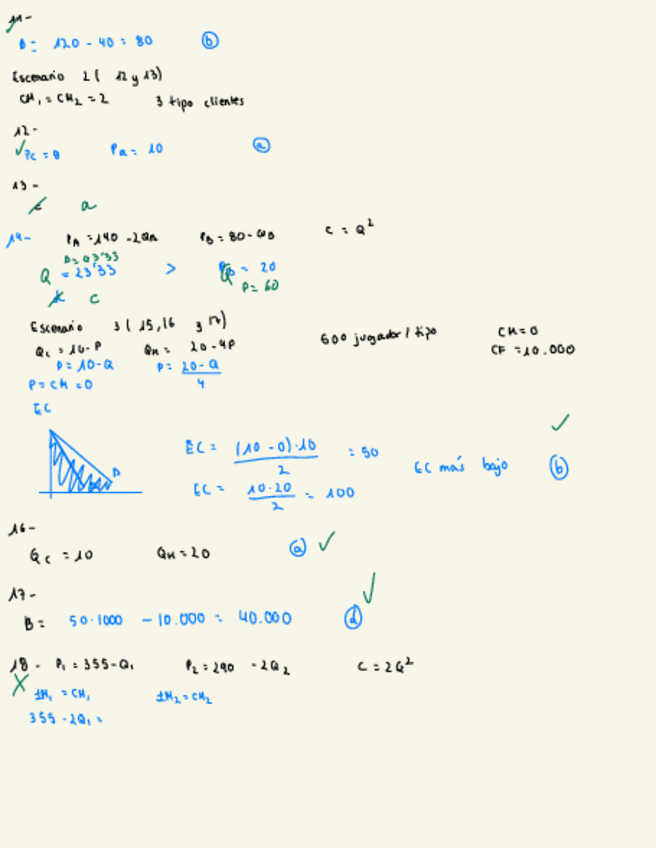 11-
B = 120 - 40 = 80 (b)
Escenario 2 ( 12 y 13)
CM₁ = CM₂ = 2 3 tipo clientes
12-
✓ Pc = 8 Pa = 10 (a)
13 -
a
14- PA = 140 - 2QA PB = 80 - QB C = Q²
P = 93'33
Q = 23'33 > Q = 20
P = 60
c
Escenario 3 ( 15, 16 y 17)
QC = 10-P QH = 20 - 4P 500 jugador / tipo CM = 0
P = 10-Q P = 20-Q / 4 CF = 10.000
P = CM = 0
EC
✓
D
EC = (10 - 0)·10 / 2 = 50 EC más bajo (b)
EC = 10·20 / 2 = 100
16-
QC = 10 QH = 20 (a) ✓
17-
✓
B = 50·1000 - 10.000 = 40.000 (d)
18 - P₁ = 355 - Q₁ P₂ = 290 - 2Q₂ C = 2Q²
X IM₁ = CM₁ IM₂ = CM₂
355 - 2Q₁ =